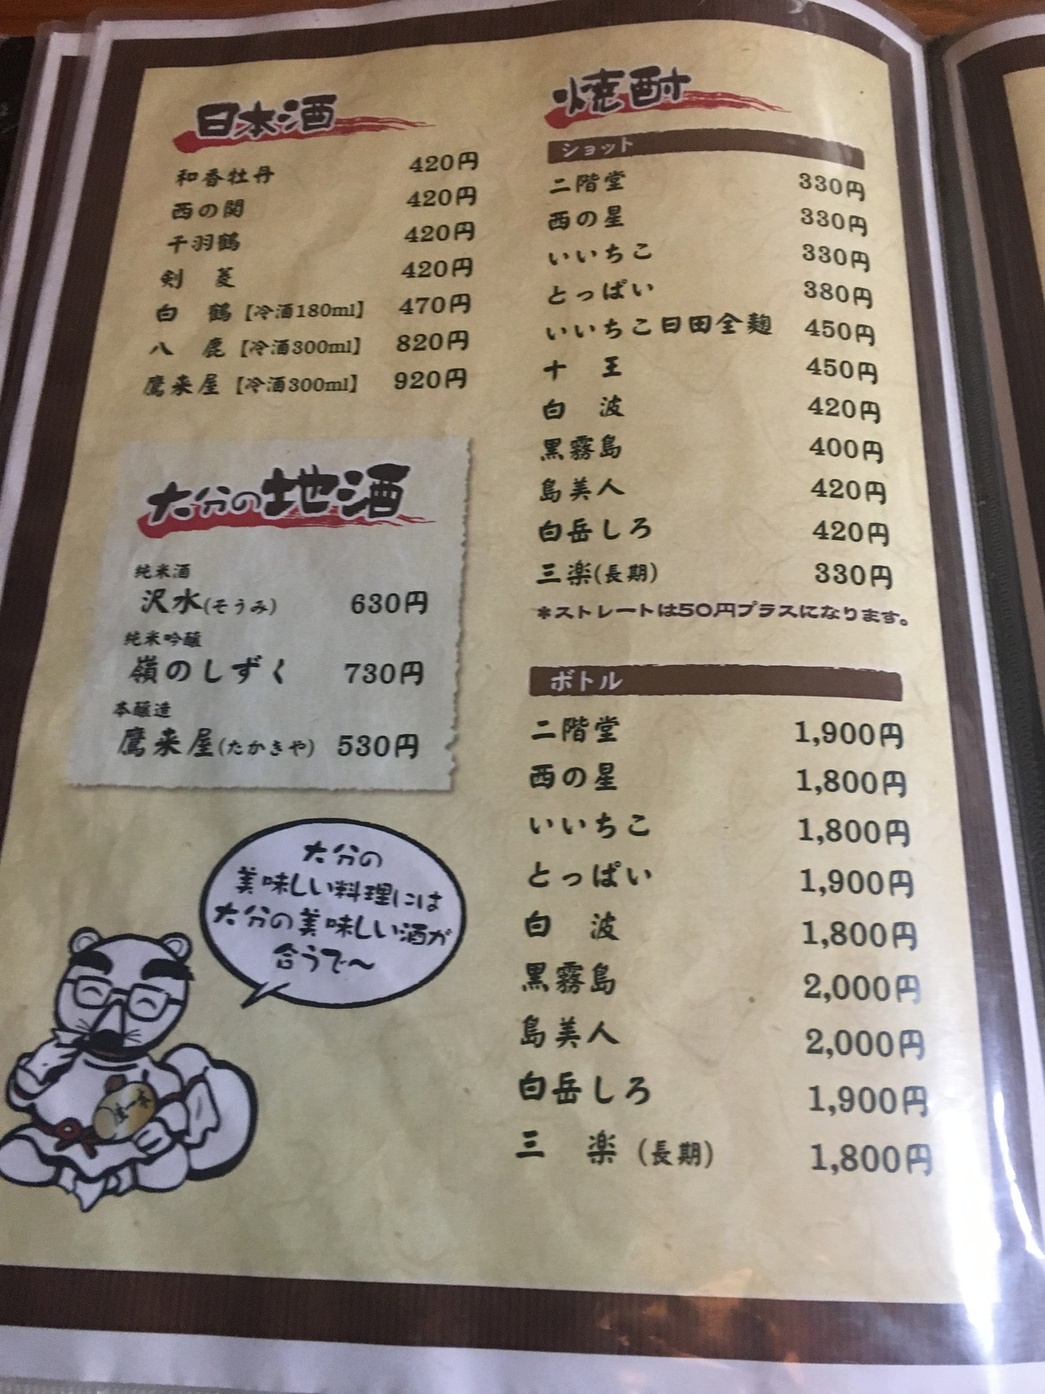 日本酒
和香牡丹 420円
西の関 420円
千羽鶴 420円
剣 菱 420円
白 鶴【冷酒180ml】 470円
八 鹿【冷酒300ml】 820円
鷹来屋【冷酒300ml】 920円
大分の地酒
純米酒
沢水(そうみ) 630円
純米吟醸
嶺のしずく 730円
本醸造
鷹来屋(たかきや) 530円
大分の
美味しい料理には
大分の美味しい酒が
合うで～
焼酎
ショット
二階堂 330円
西の星 330円
いいちこ 330円
とっぱい 380円
いいちこ日田全麹 450円
十 王 450円
白 波 420円
黒霧島 400円
島美人 420円
白岳しろ 420円
三楽(長期) 330円
*ストレートは50円プラスになります。
ボトル
二階堂 1,900円
西の星 1,800円
いいちこ 1,800円
とっぱい 1,900円
白 波 1,800円
黒霧島 2,000円
島美人 2,000円
白岳しろ 1,900円
三 楽(長期) 1,800円